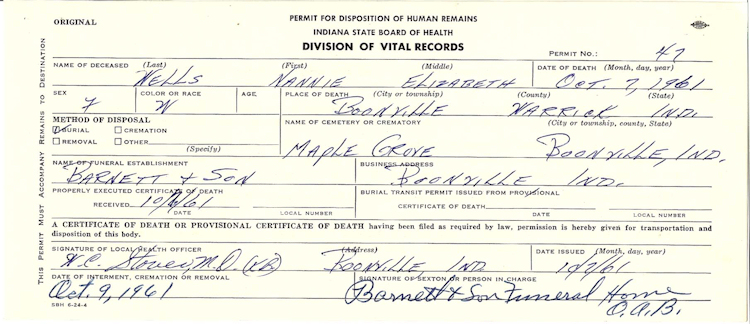 ORIGINAL
PERMIT FOR DISPOSITION OF HUMAN REMAINS
INDIANA STATE BOARD OF HEALTH
DIVISION OF VITAL RECORDS
PERMIT NO.: 47
THIS PERMIT MUST ACCOMPANY REMAINS TO DESTINATION
NAME OF DECEASED (Last) (First) (Middle) DATE OF DEATH (Month, day, year)
WELLS NANNIE ELIZABETH OCT. 7, 1961
SEX COLOR OR RACE AGE PLACE OF DEATH (City or township) (County) (State)
F W BOONVILLE WARRICK IND.
METHOD OF DISPOSAL NAME OF CEMETERY OR CREMATORY (City or township, county, State)
BURIAL CREMATION
REMOVAL OTHER
(Specify)
MAPLE GROVE BOONVILLE, IND.
NAME OF FUNERAL ESTABLISHMENT BUSINESS ADDRESS
BARNETT & SON BOONVILLE IND.
PROPERLY EXECUTED CERTIFICATE OF DEATH BURIAL TRANSIT PERMIT ISSUED FROM PROVISIONAL
RECEIVED CERTIFICATE OF DEATH
DATE LOCAL NUMBER DATE LOCAL NUMBER
A CERTIFICATE OF DEATH OR PROVISIONAL CERTIFICATE OF DEATH having been filed as required by law, permission is hereby given for transportation and
disposition of this body.
SIGNATURE OF LOCAL HEALTH OFFICER (Address) DATE ISSUED (Month, day, year)
BOONVILLE IND. 10/9/61
DATE OF INTERMENT, CREMATION OR REMOVAL SIGNATURE OF SEXTON OR PERSON IN CHARGE
Oct. 9, 1961 Barnett & Son Funeral Home
O.A.B.
SBH 6-24-4